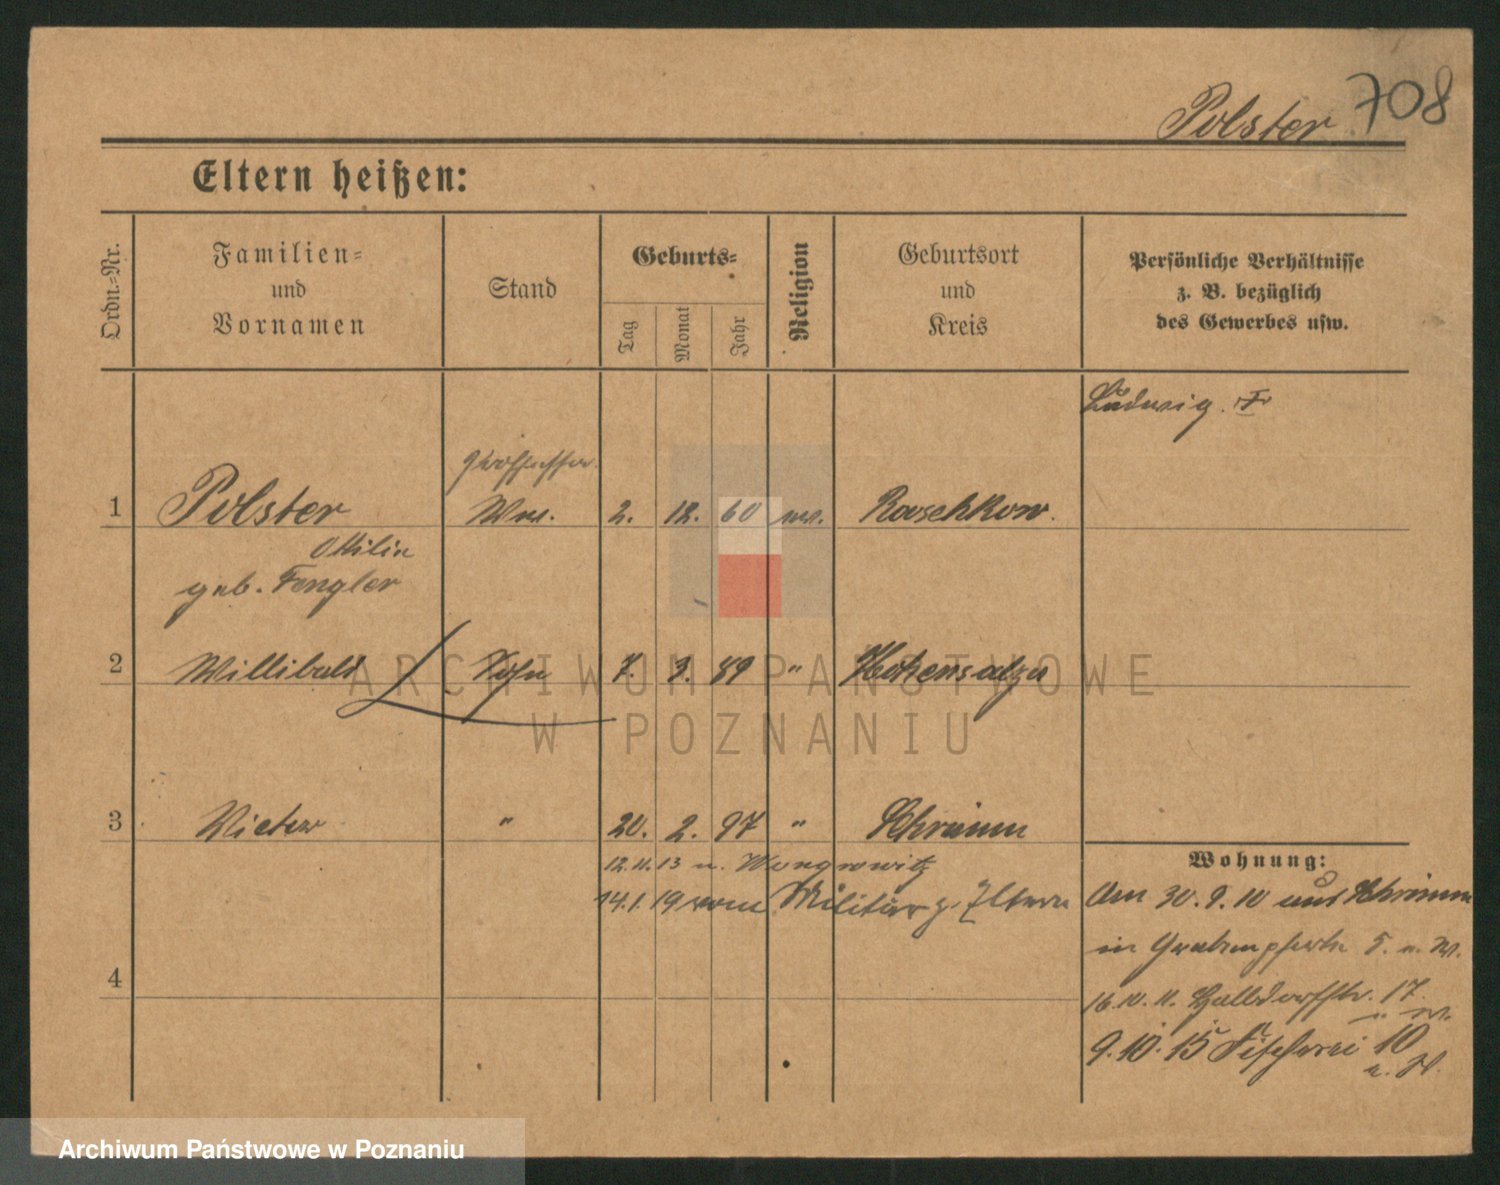 Polster 708
Eltern heißen:
Ordn.-Nr.
Familien-
und
Vornamen
Stand
Geburts-
Tag
Monat
Jahr
Religion
Geburtsort
und
Kreis
Persönliche Verhältnisse
z. B. bezüglich
des Gewerbes usw.
Ludwig
1 Polster Ww. 2. 12. 60 Raschkow
Ottilie
geb. Fengler
2 Willibald Sohn 7. 3. 89 " Hohensalza
3 Victor " 20. 2. 97 " Schrimm
12.11.13 n. Wongrowitz
14.1.19 vom Militär z. Eltern
4
Wohnung:
Am 30.9.10 aus Schrimm
in Grabenpforte 5.
16.10.11. 17
9.10.15 Fischerei 10
ARCHIWUM PAŃSTWOWE
W POZNANIU
Archiwum Państwowe w Poznaniu